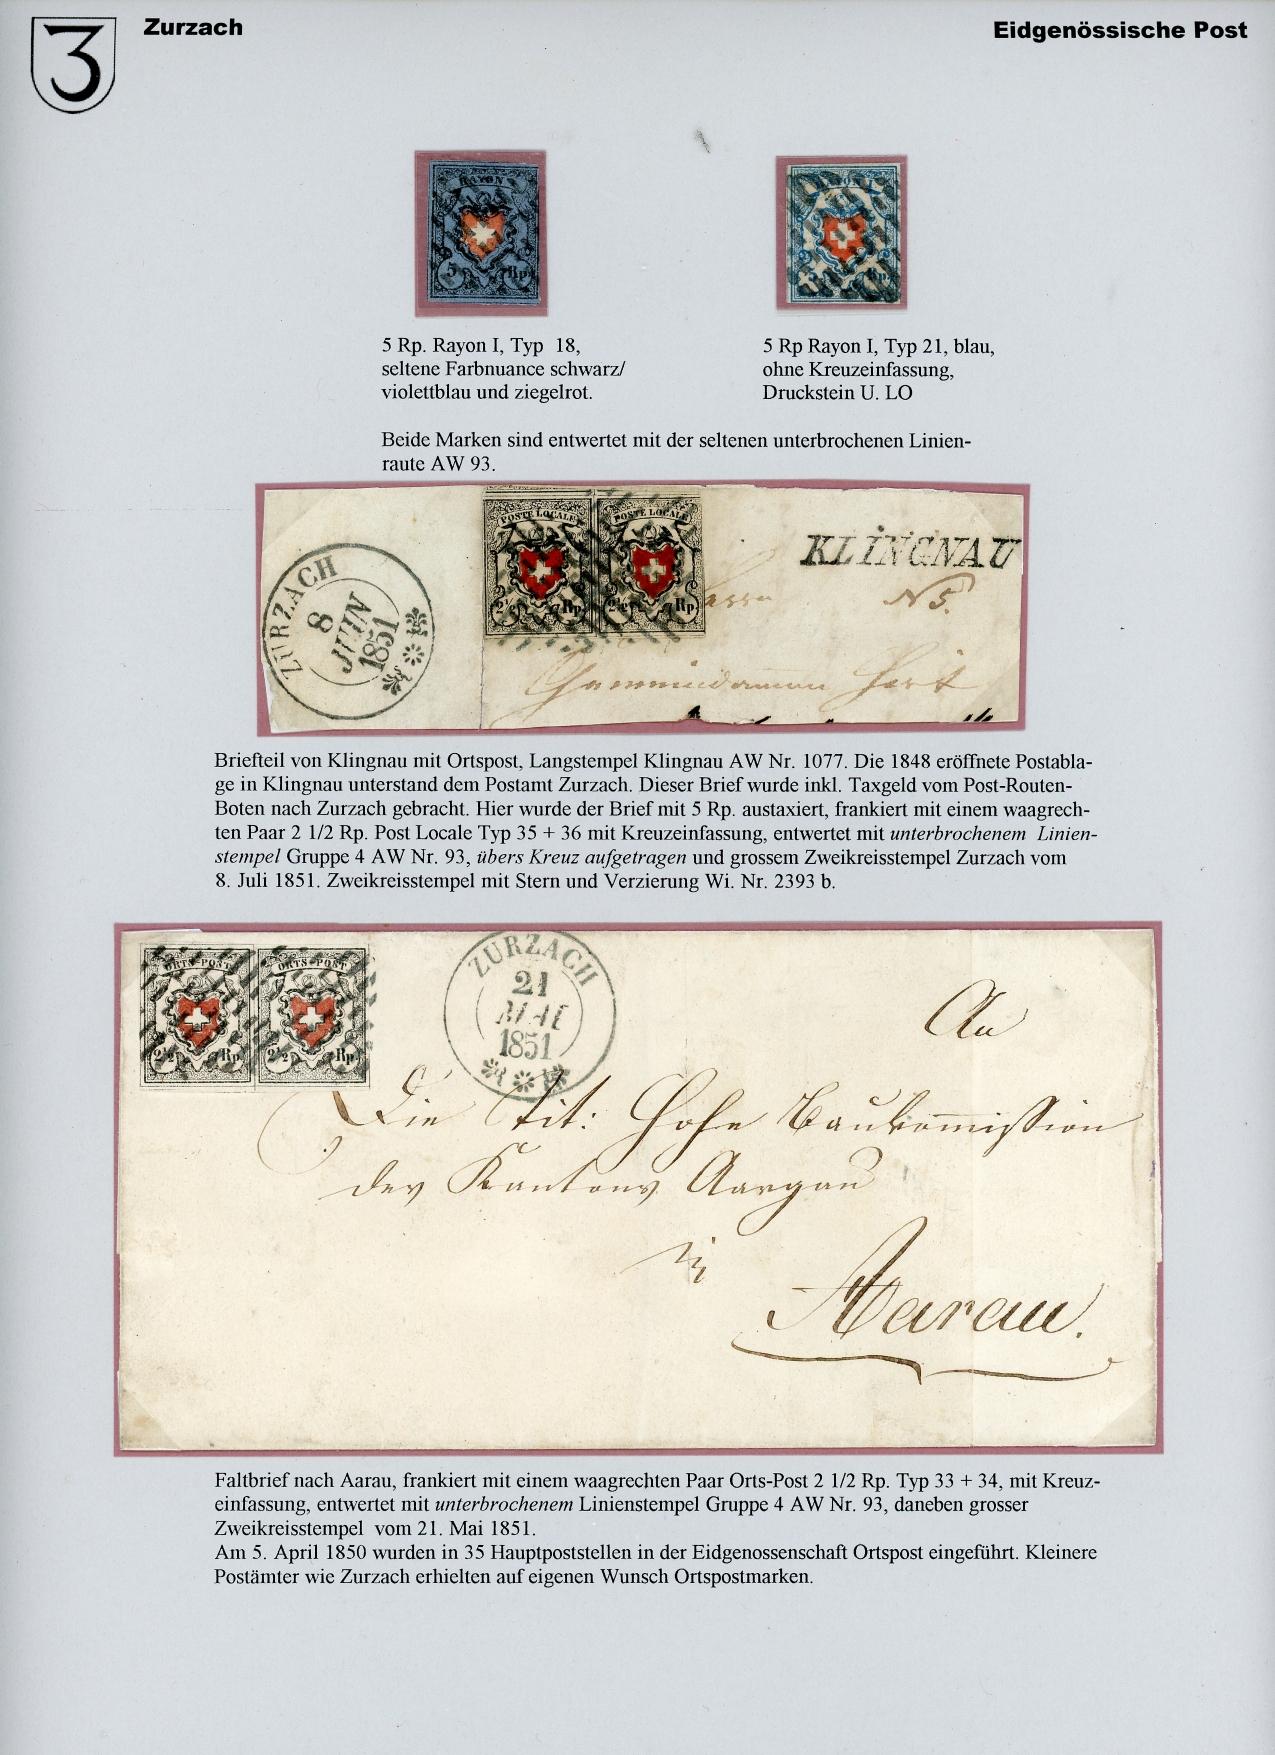 Zurzach
Eidgenössische Post
RAYON I
5 Rp.
5 Rp.
5 Rp. Rayon I, Typ 18,
seltene Farbnuance schwarz/
violettblau und ziegelrot.
5 Rp Rayon I, Typ 21, blau,
ohne Kreuzeinfassung,
Druckstein U. LO
Beide Marken sind entwertet mit der seltenen unterbrochenen Linien-
raute AW 93.
POSTE LOCALE POSTE LOCALE
2 1/2 Rp. 2 1/2 Rp.
KLINGNAU
N 5.
ZURZACH
8
JUIN
1851
Briefteil von Klingnau mit Ortspost, Langstempel Klingnau AW Nr. 1077. Die 1848 eröffnete Postabla-
ge in Klingnau unterstand dem Postamt Zurzach. Dieser Brief wurde inkl. Taxgeld vom Post-Routen-
Boten nach Zurzach gebracht. Hier wurde der Brief mit 5 Rp. austaxiert, frankiert mit einem waagrech-
ten Paar 2 1/2 Rp. Post Locale Typ 35 + 36 mit Kreuzeinfassung, entwertet mit unterbrochenem Linien-
stempel Gruppe 4 AW Nr. 93, übers Kreuz aufgetragen und grossem Zweikreisstempel Zurzach vom
8. Juli 1851. Zweikreisstempel mit Stern und Verzierung Wi. Nr. 2393 b.
ORTS-POST ORTS-POST
2 1/2 Rp. 2 1/2 Rp.
ZURZACH
21
MAI
1851
An
Die Tit: Hohe Baukom̄ission
des Kantons Aargau
in
Aarau.
Faltbrief nach Aarau, frankiert mit einem waagrechten Paar Orts-Post 2 1/2 Rp. Typ 33 + 34, mit Kreuz-
einfassung, entwertet mit unterbrochenem Linienstempel Gruppe 4 AW Nr. 93, daneben grosser
Zweikreisstempel vom 21. Mai 1851.
Am 5. April 1850 wurden in 35 Hauptpoststellen in der Eidgenossenschaft Ortspost eingeführt. Kleinere
Postämter wie Zurzach erhielten auf eigenen Wunsch Ortspostmarken.